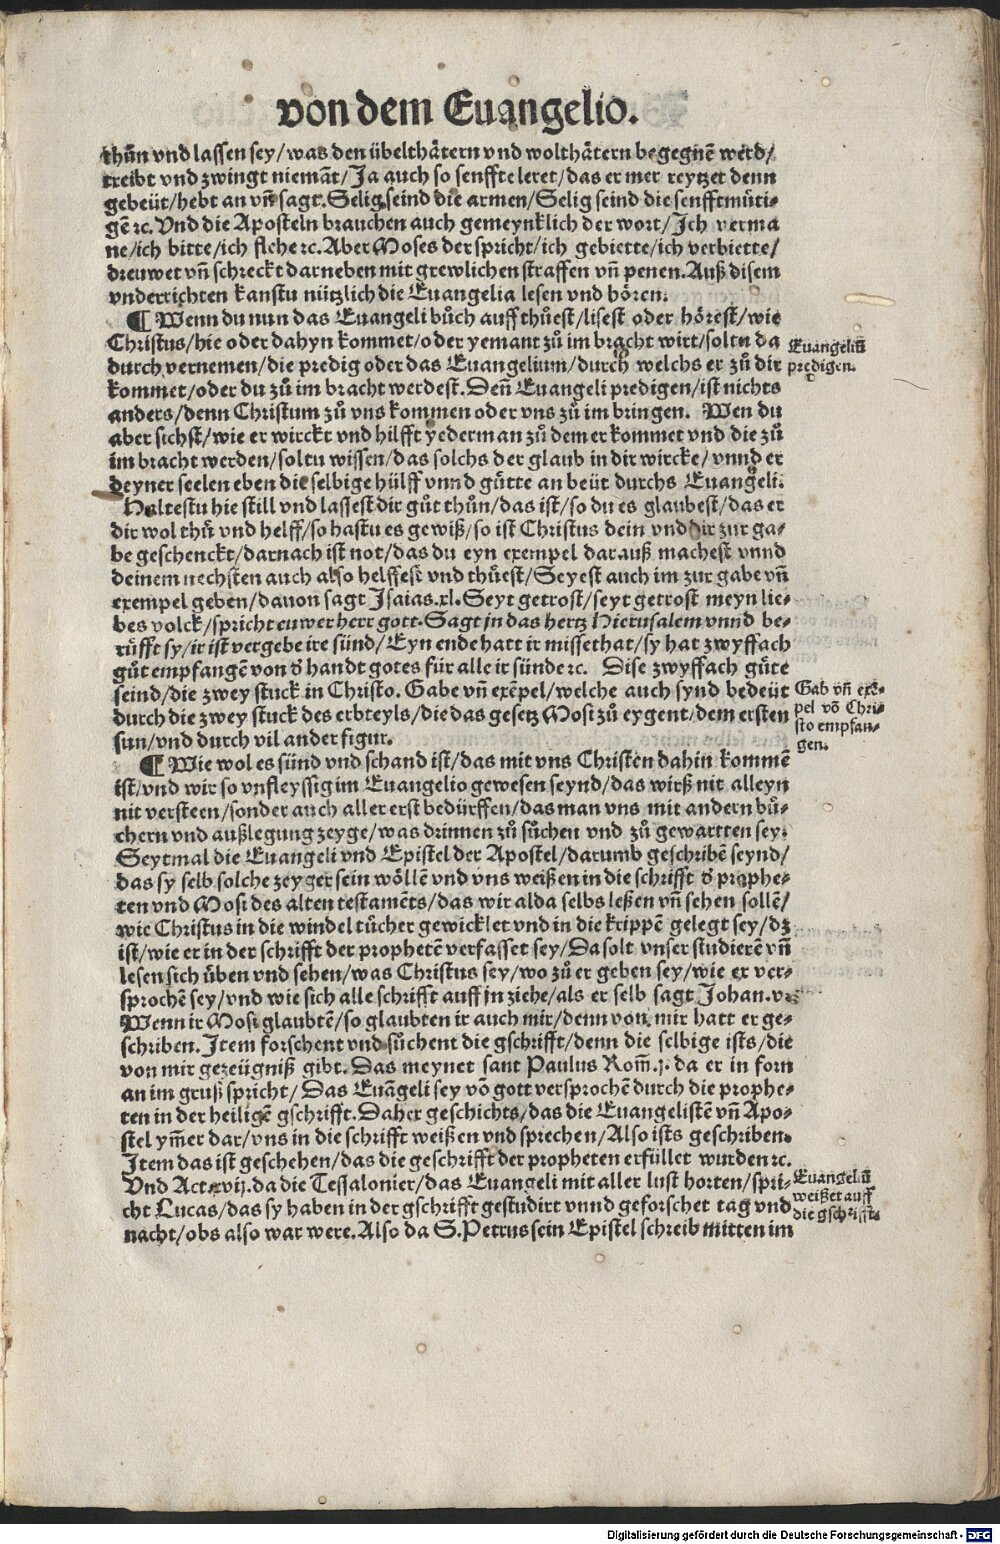 von dem Euangelio.
thůn vnd lassen sey/was den übelthätern vnd wolthätern begegnē werd/
treibt vnd zwingt niemāt/Ja auch so senffte leret/das er mer reytzet denn
gebeüt/hebt an vñ sagt. Selig seind die armen/Selig seind die senfftmüti-
gē ꝛc. Vnd die Aposteln brauchen auch gemeynklich der wort/Jch verma
ne/ich bitte/ich flehe ꝛc. Aber Moses der spricht/ich gebiette/ich verbiette/
dreuwet vñ schreckt darneben mit grewlichen straffen vñ penen. Auß disem
vnderrichten kanstu nützlich die Euangelia lesen vnd hören.
¶ Wenn du nun das Euangeli bůch auff thůest/lisest oder hörest/wie
Christus/hie oder dahyn kommet/oder yemant zů im bracht wirt/soltu da
durch vernemen/die predig oder das Euangelium/durch welchs er zů dir
kommet/oder du zů im bracht werdest. Deñ Euangeli predigen/ist nichts
anders/denn Christum zů vns kommen oder vns zů im bringen. Wen du
aber sichst/wie er wirckt vnd hilfft yederman zů dem er kommet vnd die zů
im bracht werden/soltu wissen/das solchs der glaub in dir wircke/vnnd er
deyner seelen eben die selbige hülff vnnd gütte an beüt durchs Euangeli.
Haltestu hie still vnd lassest dir gůt thůn/das ist/so du es glaubest/das er
dir wol thů vnd helff/so hastu es gewiß/so ist Christus dein vnd dir zur ga-
be geschenckt/darnach ist not/das du eyn exempel darauß machest vnnd
deinem nechsten auch also helffest vnd thůest/Seyest auch im zur gabe vñ
exempel geben/dauon sagt Jsaias.xl. Seyt getrost/seyt getrost meyn lie-
bes volck/spricht euwer herr gott. Sagt jn das hertz Hierusalem vnnd be-
rüfft sy/ir ist vergebe ire sünd/Eyn ende hatt ir missethat/sy hat zwyffach
gůt empfangē von ð handt gotes für alle ir sünde ꝛc. Dise zwyffach güte
seind/die zwey stuck in Christo. Gabe vñ exēpel/welche auch synd bedeüt
durch die zwey stuck des erbteyls/die das gesetz Mosi zů eygent/dem ersten
sun/vnd durch vil ander figur.
¶ Wie wol es sünd vnd schand ist/das mit vns Christen dahin kommē
ist/vnd wir so vnfleyssig im Euangelio gewesen seynd/das wirß nit alleyn
nit versteen/sonder auch aller erst bedürffen/das man vns mit andern bů-
chern vnd außlegung zeyge/was drinnen zů sůchen vnd zů gewartten sey.
Seytmal die Euangeli vnd Epistel der Apostel/darumb geschribē seynd/
das sy selb solche zeyger sein wöllē vnd vns weißen in die schrifft ð prophe-
ten vnd Mosi des alten testamēts/das wir alda selbs leßen vñ sehen sollē/
wie Christus in die windel tücher gewicklet vnd in die krippē gelegt sey/dz
ist/wie er in der schrifft der prophetē verfasset sey/Da solt vnser studierē vñ
lesen sich üben vnd sehen/was Christus sey/wo zů er geben sey/wie er ver-
sprochē sey/vnd wie sich alle schrifft auff jn ziehe/als er selb sagt Johan.v.
Wenn ir Mosi glaubtē/so glaubten ir auch mir/denn von mir hatt er ge-
schriben. Jtem forschent vnd sůchent die gschrifft/denn die selbige ists/die
von mir gezeügniß gibt. Das meynet sant Paulus Rom̄.j. da er in forn
an im gruß spricht/Das Euāgeli sey vō gott versprochē durch die prophe-
ten in der heiligē gschrifft. Daher geschichts/das die Euangelistē vñ Apo-
stel ym̄er dar/vns in die schrifft weißen vnd sprechen/Also ists geschriben.
Jtem das ist geschehen/das die geschrifft der propheten erfüllet wurden ꝛc.
Vnd Act.xvij. da die Tessalonier/das Euangeli mit aller lust horten/spri-
cht Lucas/das sy haben in der gschrifft gestudirt vnnd geforschet tag vnd
nacht/obs also war were. Also da S. Petrus sein Epistel schreib mitten im
Euangeliū
predigen.
Gab vñ exē-
pel vō Chri-
sto empfan-
gen.
Euangeliū
weißet auff
die gschrifft.
Digitalisierung gefördert durch die Deutsche Forschungsgemeinschaft - DFG